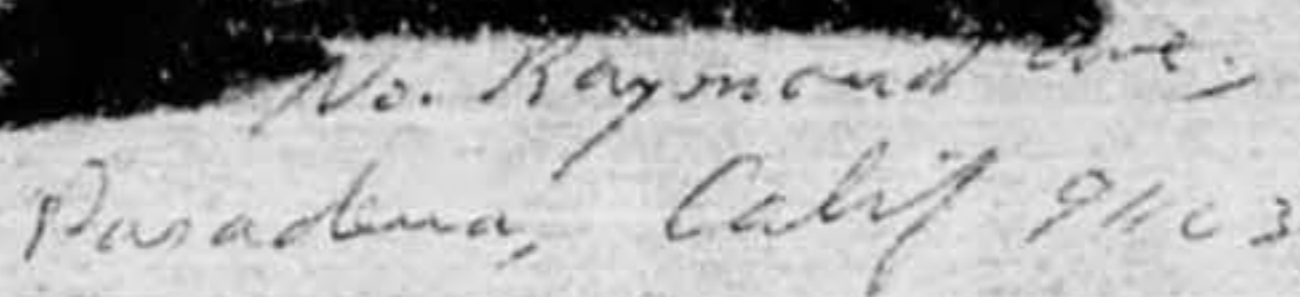 No. Raymond Ave.,
Pasadena, Calif 91103